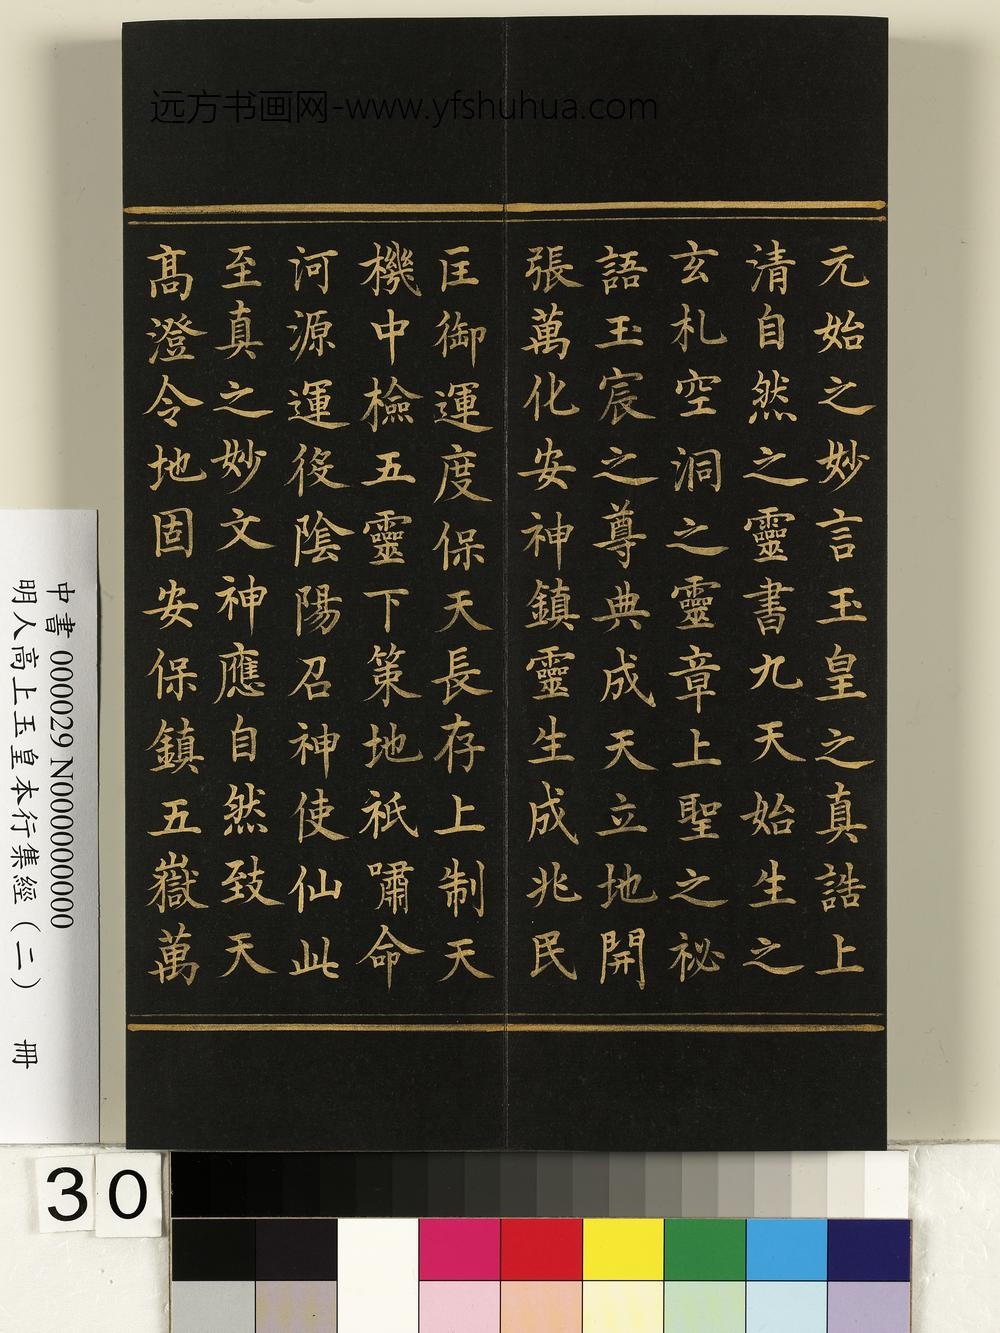 远方书画网-www.yfshuhua.com
元始之妙言玉皇之真誥上
清自然之靈書九天始生之
玄札空洞之靈章上聖之祕
語玉宸之尊典成天立地開
張萬化安神鎮靈生成兆民
匡御運度保天長存上制天
機中檢五靈下策地祇嘯命
河源運役陰陽召神使仙此
至真之妙文神應自然致天
高澄令地固安保鎮五嶽萬
中書 000029 N000000000
明人高上玉皇本行集經(二) 冊
30